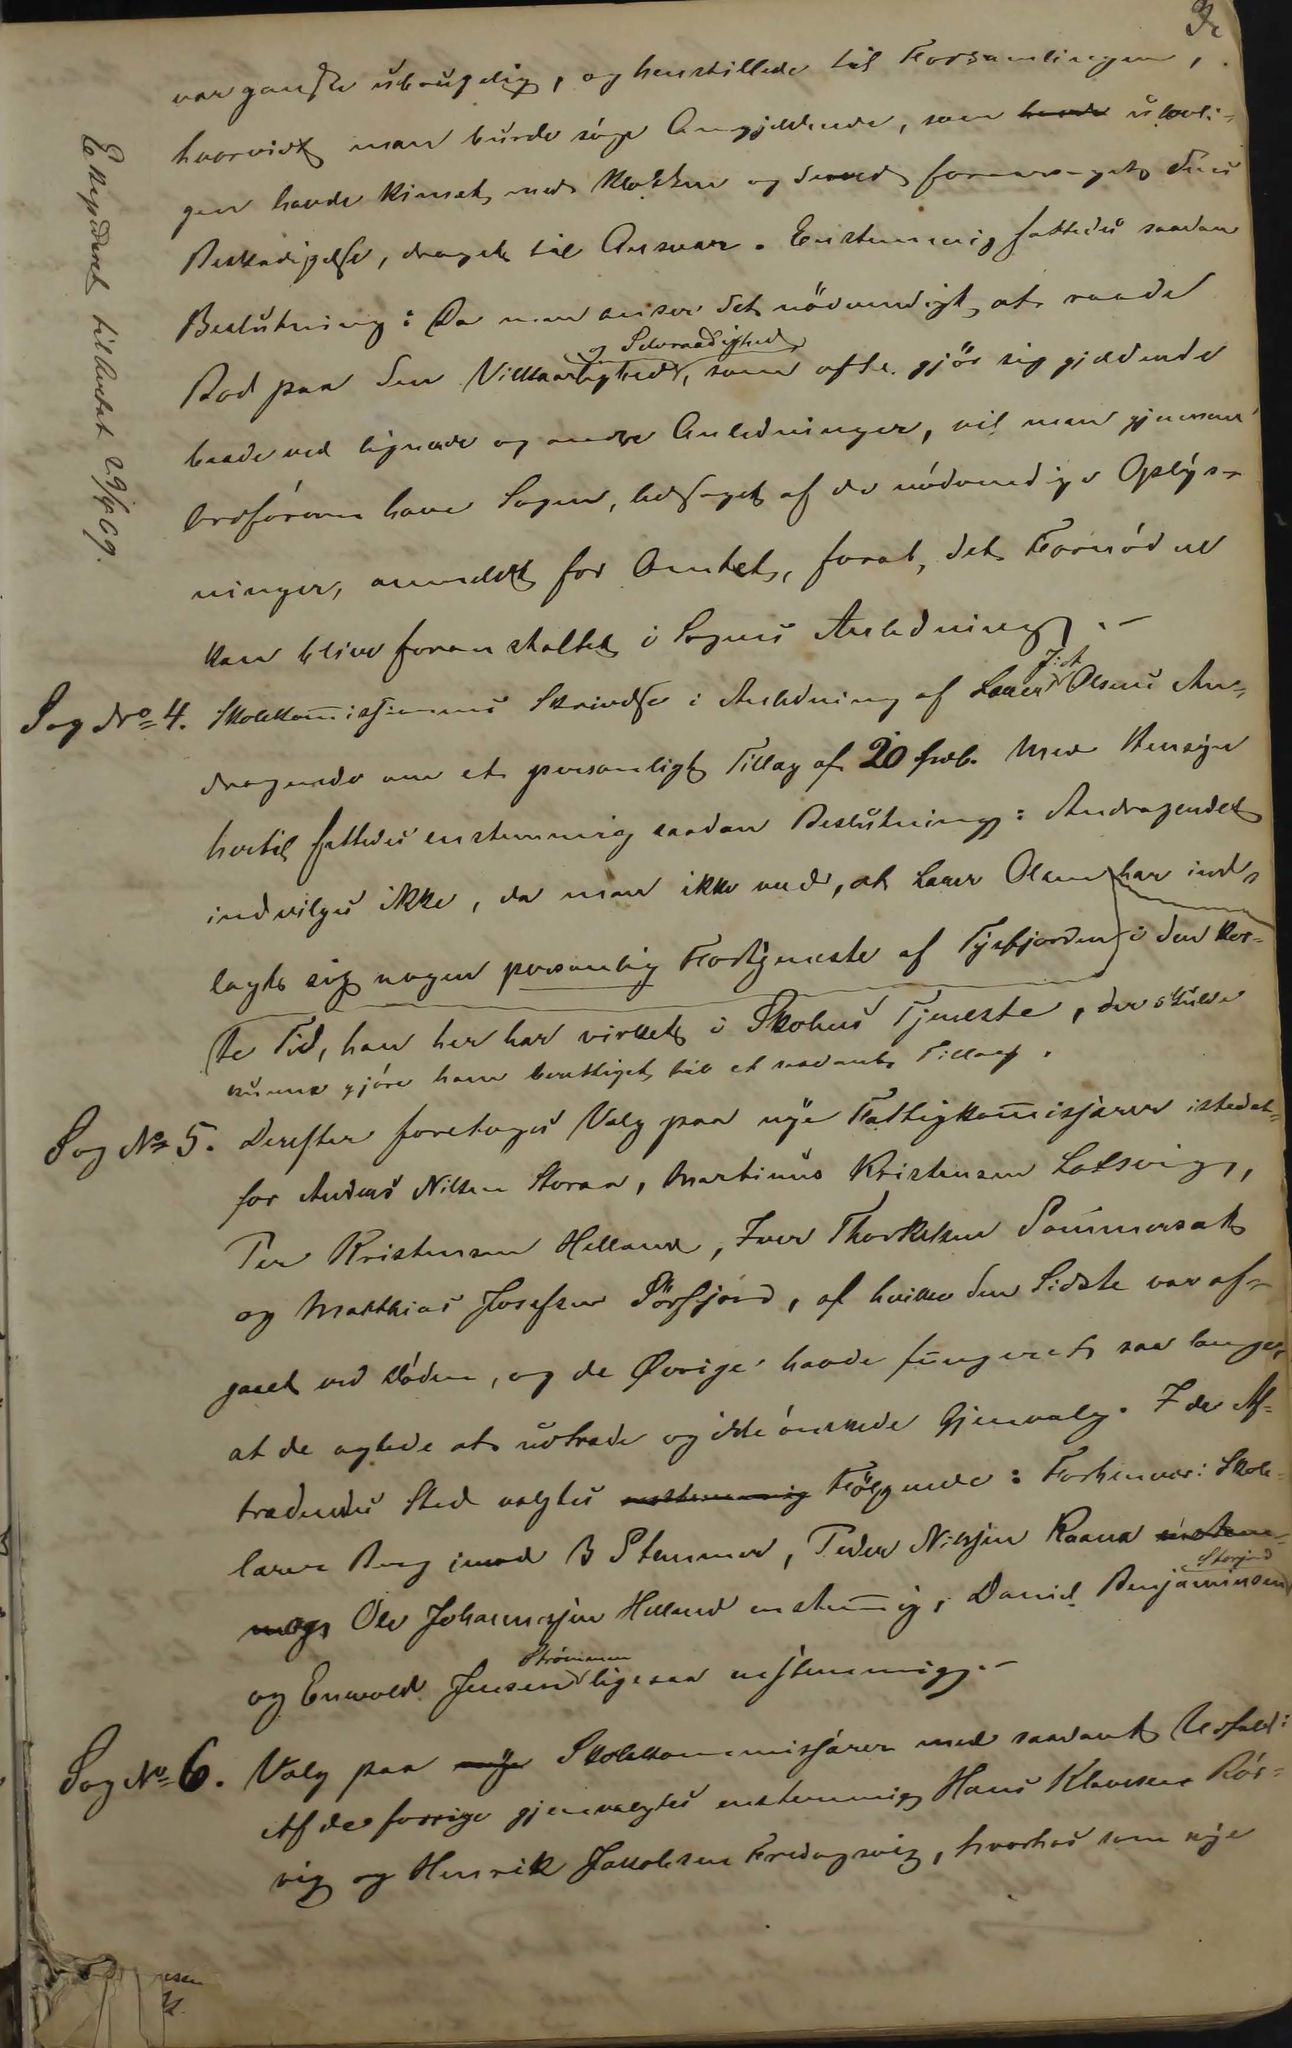 var ganske ubrugelig, og henstillede til Forsamlingen,
hvorvidt man burde søge Angjeldende, som havde ulovli-
gen havde kimet med Klokken og derved foraarsaget dens
Beskadigelse, draget til Ansvar. Enstemmig fattedes saadan
Beslutning: Da man anser det nödvendigt at raade
Bod paa den Vilkaarlighed, som ofte gjör sig gjældende
og Selvraadighed
baade ved lignende og andre Anledninger, vil man gjennem
Ordføreren have Sagen, ledsaget af de nödvendige Oplys-
ninger, anmeldt for Amtet, forat det Fornødne
kan blive foranstaltet i Sagens Anledning.-
Ekspederet til Amtet 29/ 69.
Sag No 4. Skolekommissionens Skrivelse i Anledning af Lærer J: A Olsens An-
dragende om et personligt Tillæg af 20 Med Hensyn
hertil fattedes enstemmig saadan Beslutning: Andragendet
indvilges ikke, da man ikke ved, at Lærer Olsen har ind-
lagt sig nogen personlig Fortjeneste af Tysfjorden i den kor-
te Tid, han her har virket i Skolens Tjeneste, der skulde
kunne gjöre ham berettiget til et saadant Tillæg.
Sag No 5. Derefter foretoges Valg paa nye Fattigkommisjærer istedet-
for Anders Nilsen Storaa, Martinus Kristensen Kalsvig,
Per Kristensen Helland, Iver Thorkelsen Sommersæt
og Matthias Josefsen Sörfjord, af hvilke den Sidste var af-
gaaet ved Döden, og de Øvrige havde fungeret saa længe,
at de agtede at udtræde og ikke ønskede Gjenvalg. I de Af-
trædendes Sted valgtes enstemmig Følgende: Forhenvær: Skole-
lærer Berg imod 3 Stemmer, Peder Nilsen Raana enstem-
mig, Ole Johannesen Helland enstemmig, Daniel Benjaminsen
Storjord
og Enevold Jensen Strömmen ligesaa enstemmig.-
Sag No 6. Valg paa nye Skolekommisjærer med saadant Udfald:
Af de forrige gjenvalgtes enstemmig Hans Klausen Rör-
vig og Henrik Jakobsen Fredagsvig, hvorhos som nye